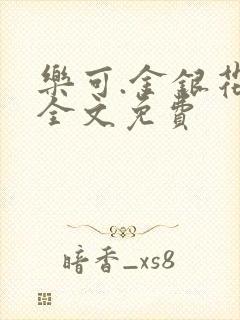 樂可.金銀花
全文免費
暗香_xs8